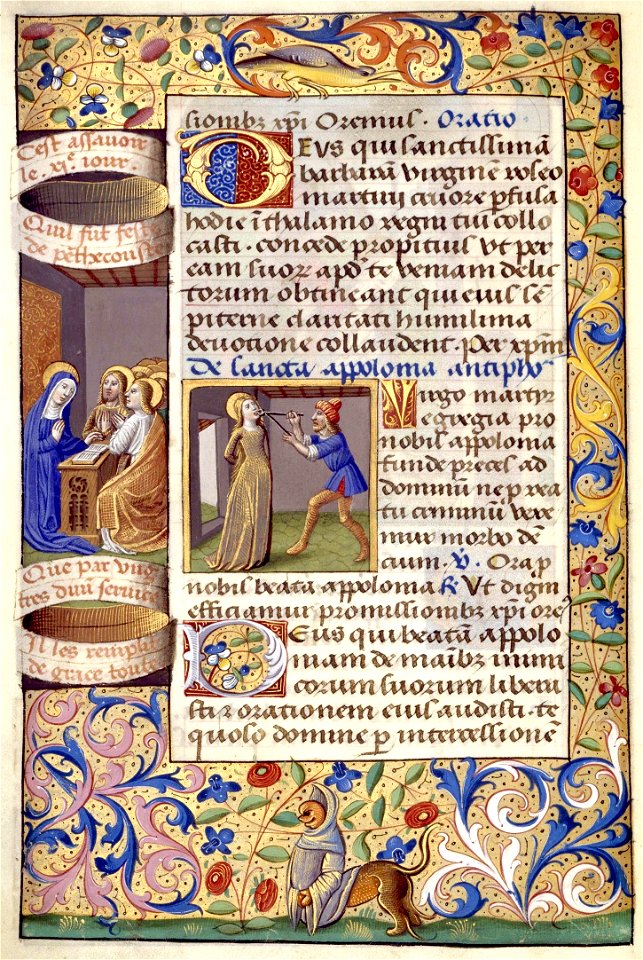 C'est assauoir
le xi^e iour.
Qu'il fut feste
de pēthecouste
Que par vng
tres diuin seruice
Il les remplit
de grace toute
sionibz xpi Oremus. Oratio
DEus qui sanctissimā
barbarā virginē roseo
martirii cruore pfusā
hodie ī thalamo regni tui collo
casti. concede propitius vt per
eam suor apd te veniam delic
torum obtineant qui eius sē
piterne claritati humilima
deuotione collaudent. Per xpm
De sancta appolonia antipho
Virgo martyr
egregia pro
nobis appolonia
funde preces ad
dominū ne p rea
tu criminū vexe
mur morbo dē
cium. V. Ora p
nobis beata appolonia R. Vt digni
efficiamur promissionibz xpi ore
DEus qui beatā appolo
niam de manibz inimi
corum suorum libera
sti z orationem eius audisti. te
quoso domine p intercessionē